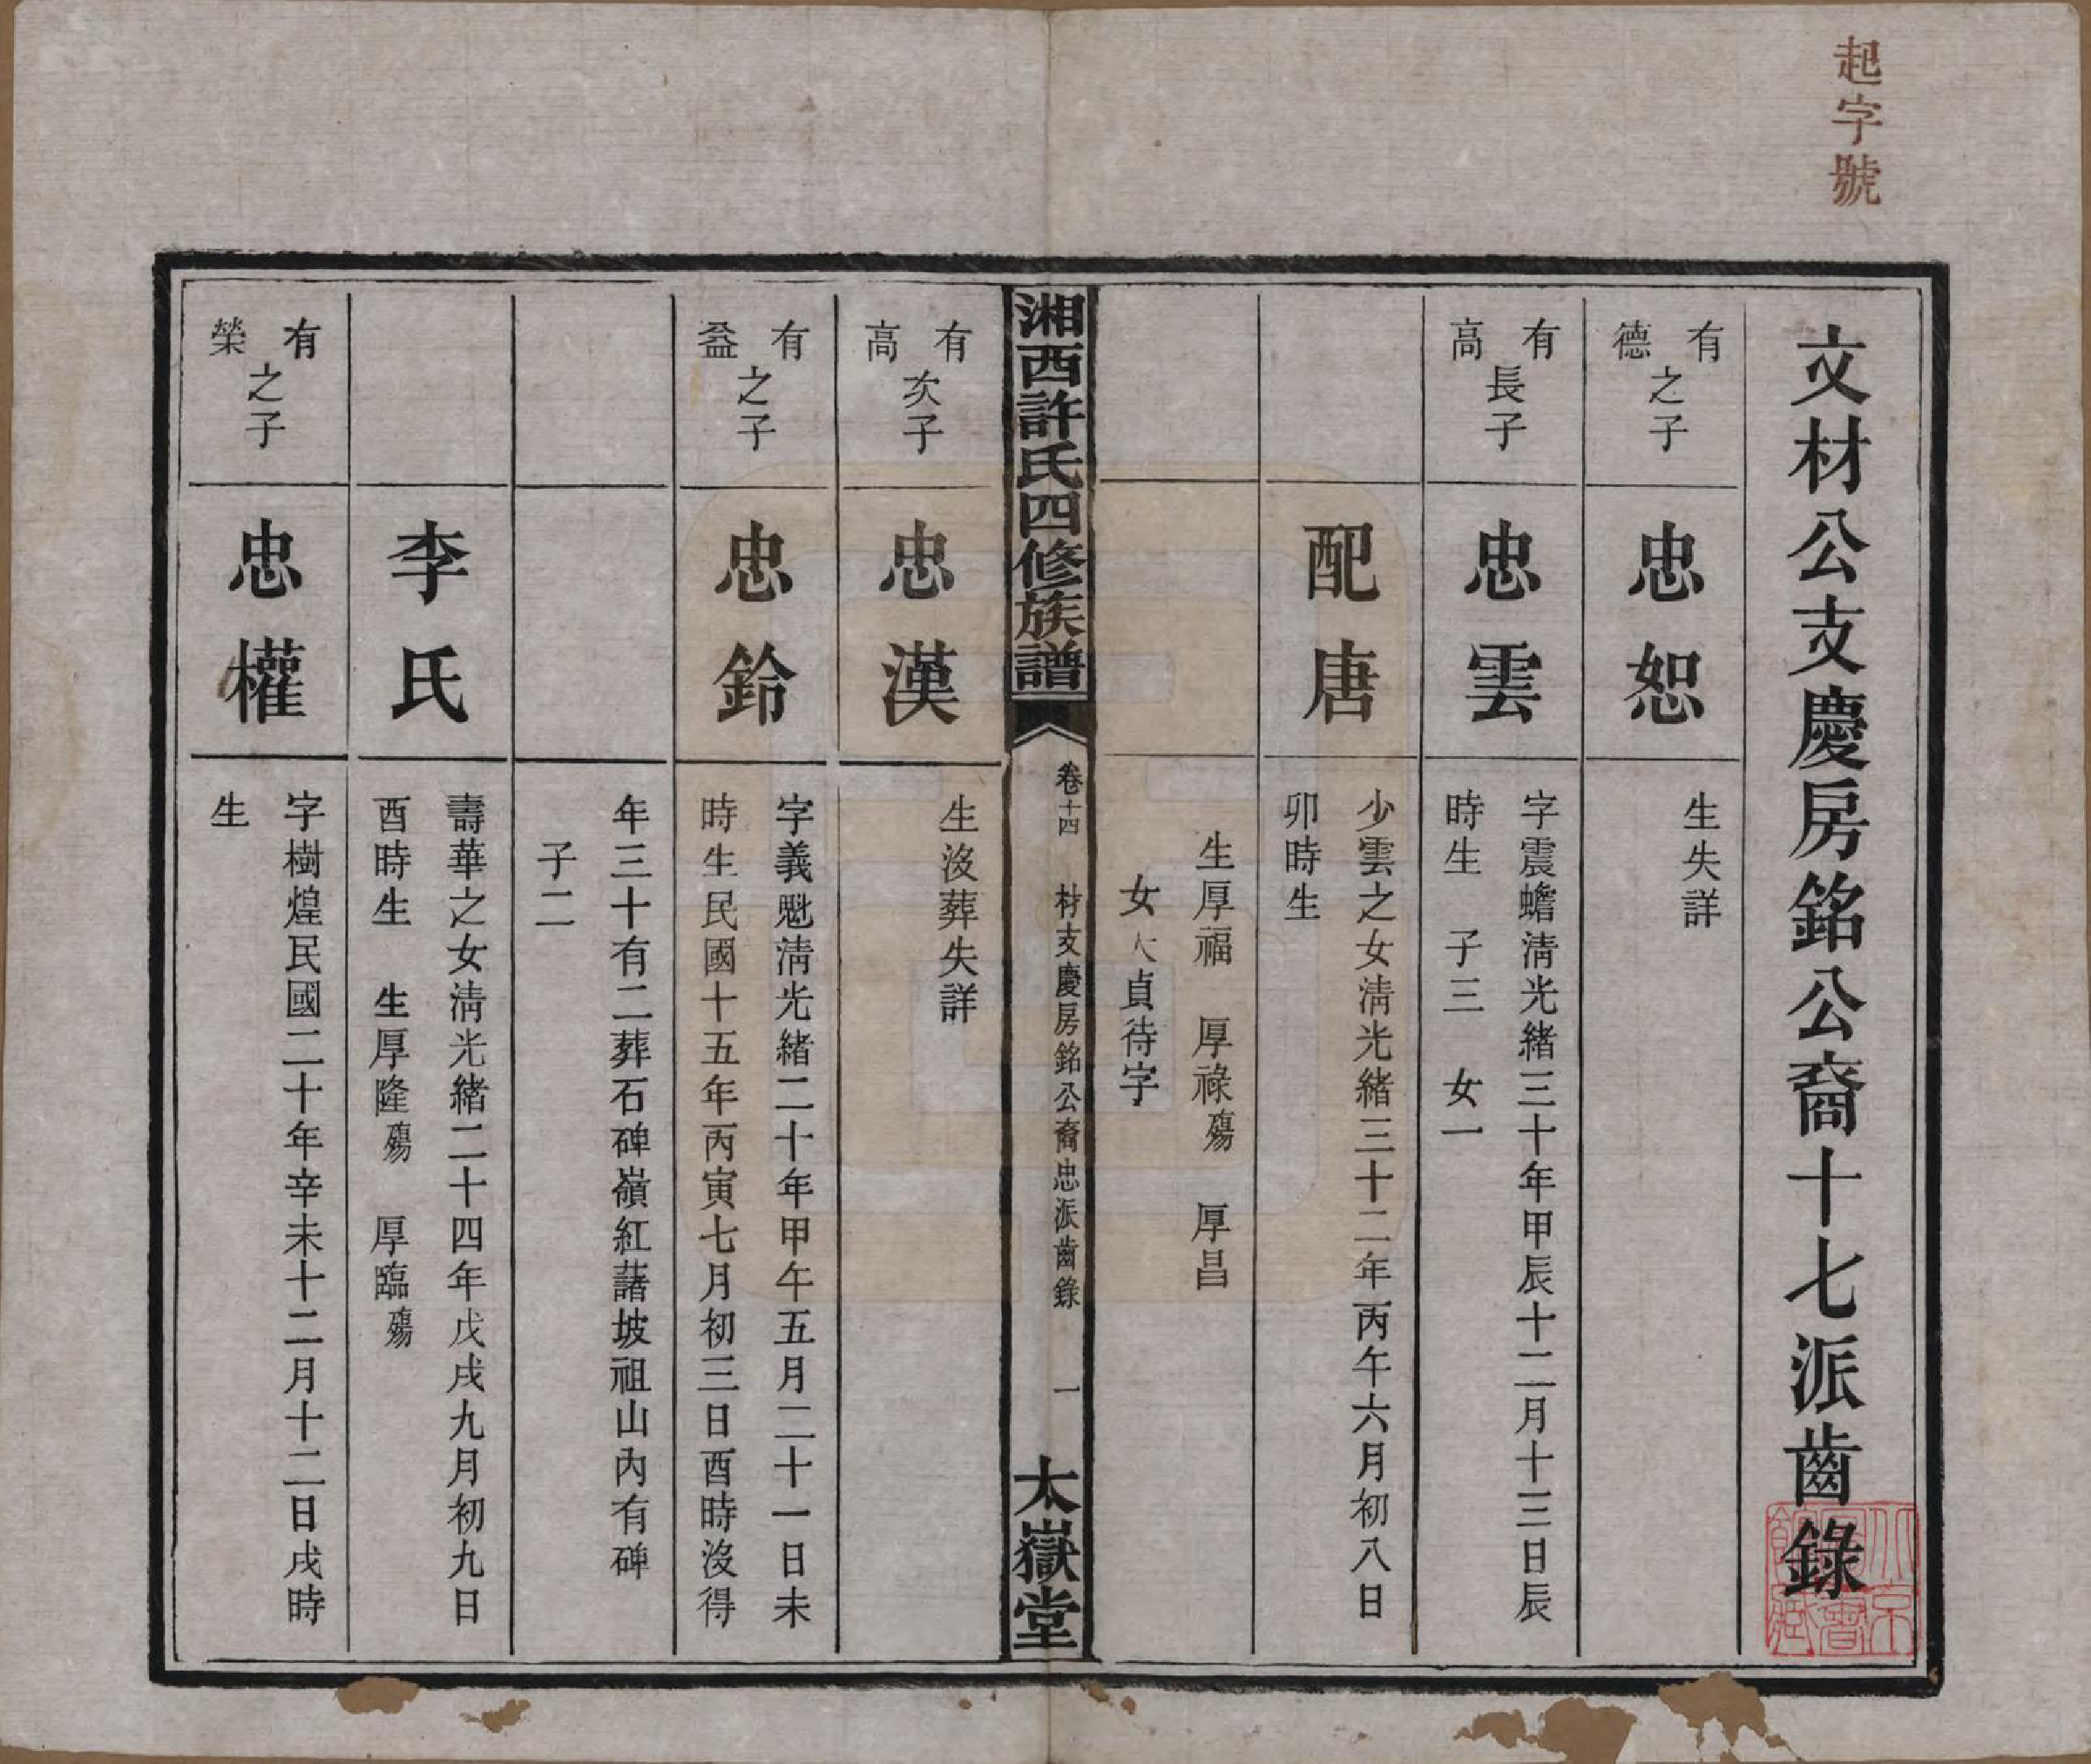 起字號
文材公支慶房銘公裔十七派齒錄
有德之子
忠恕
生失詳
有高長子
忠雲
字震蟾淸光緒三十年甲辰十二月十三日辰
時生　子三　女一
配唐
少雲之女淸光緒三十二年丙午六月初八日
卯時生
生厚福　厚祿殤　厚昌
女大貞待字
湘西許氏四修族譜
卷十四
材支慶房銘公裔忠派齒錄
一
太嶽堂
有高次子
忠漢
生沒葬失詳
有益之子
忠鈴
字義魁淸光緒二十年甲午五月二十一日未
時生民國十五年丙寅七月初三日酉時沒得
年三十有二葬石碑嶺紅藷坡祖山內有碑
子二
李氏
壽華之女淸光緒二十四年戊戌九月初九日
酉時生　生厚隆殤　厚臨殤
有榮之子
忠權
字樹煌民國二十年辛未十二月十二日戌時
生